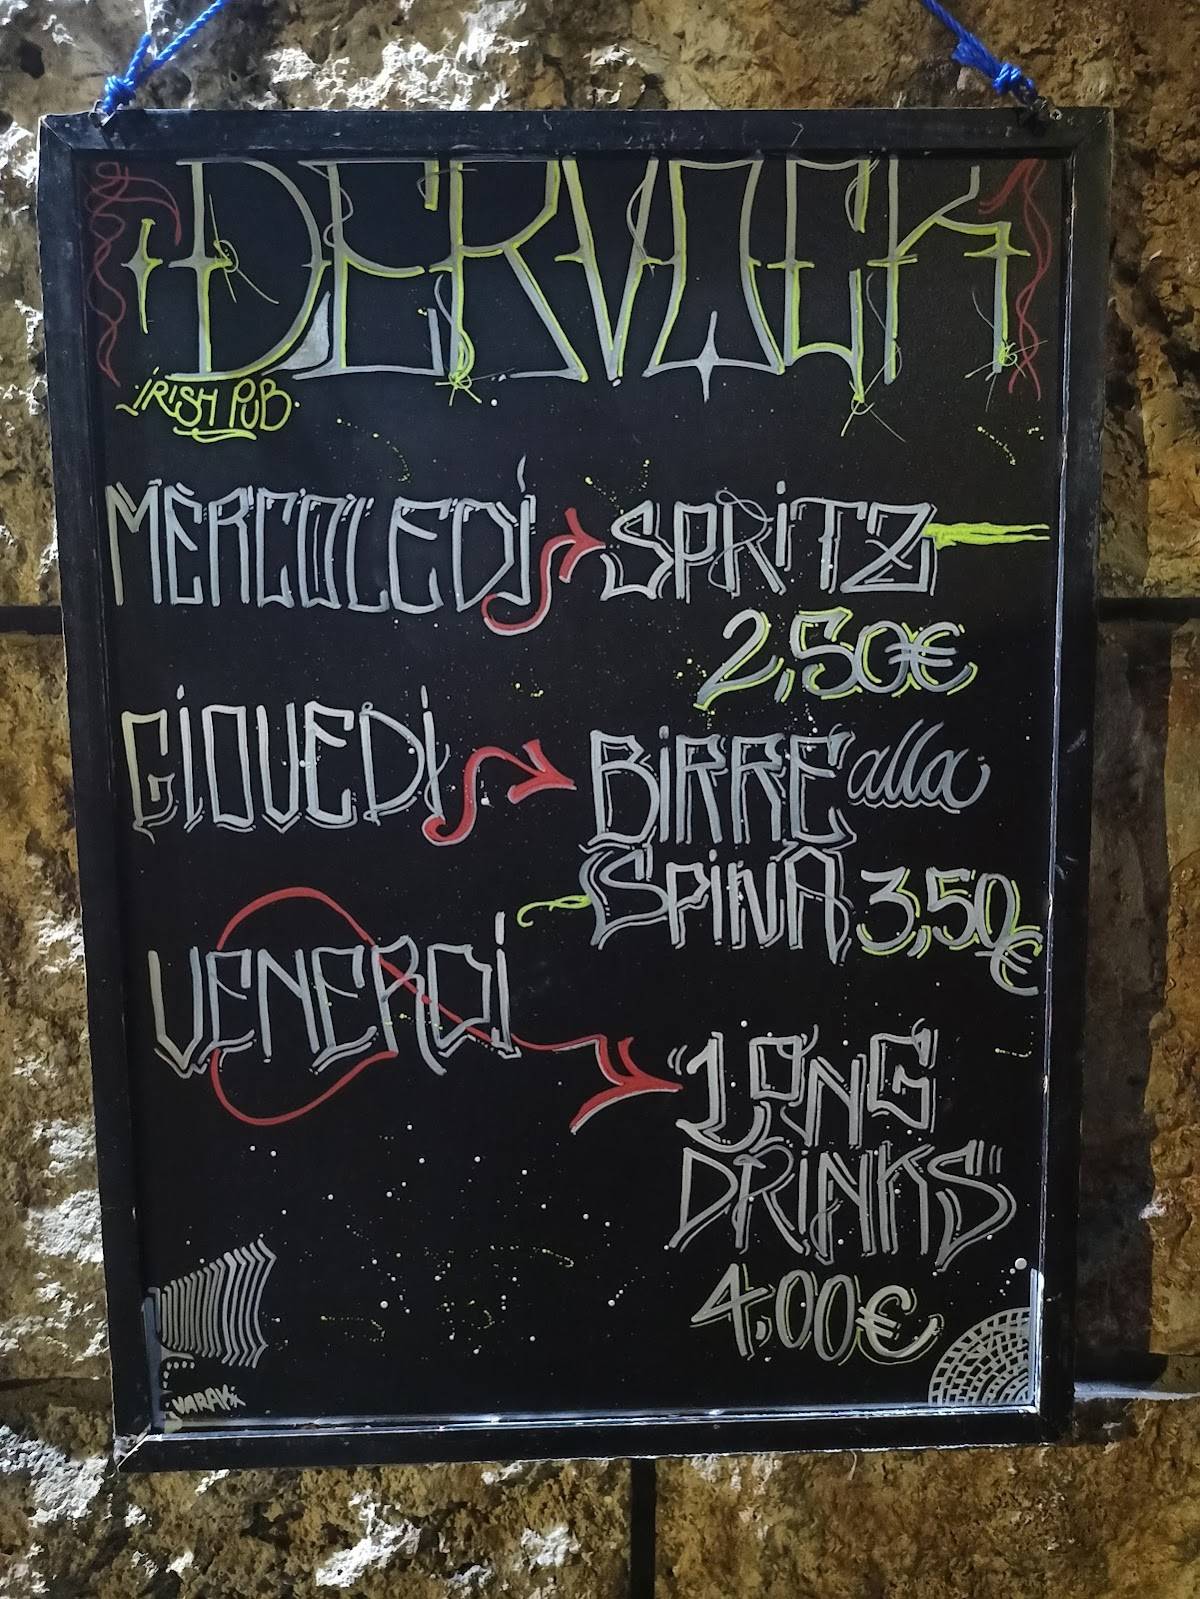 DERVOCK
IRISH PUB
MERCOLEDÌ SPRITZ
2,50€
GIOVEDÌ BIRRE alla
SPINA 3,50€
VENERDÌ
"LONG
DRINKS"
4,00€
VARAKI